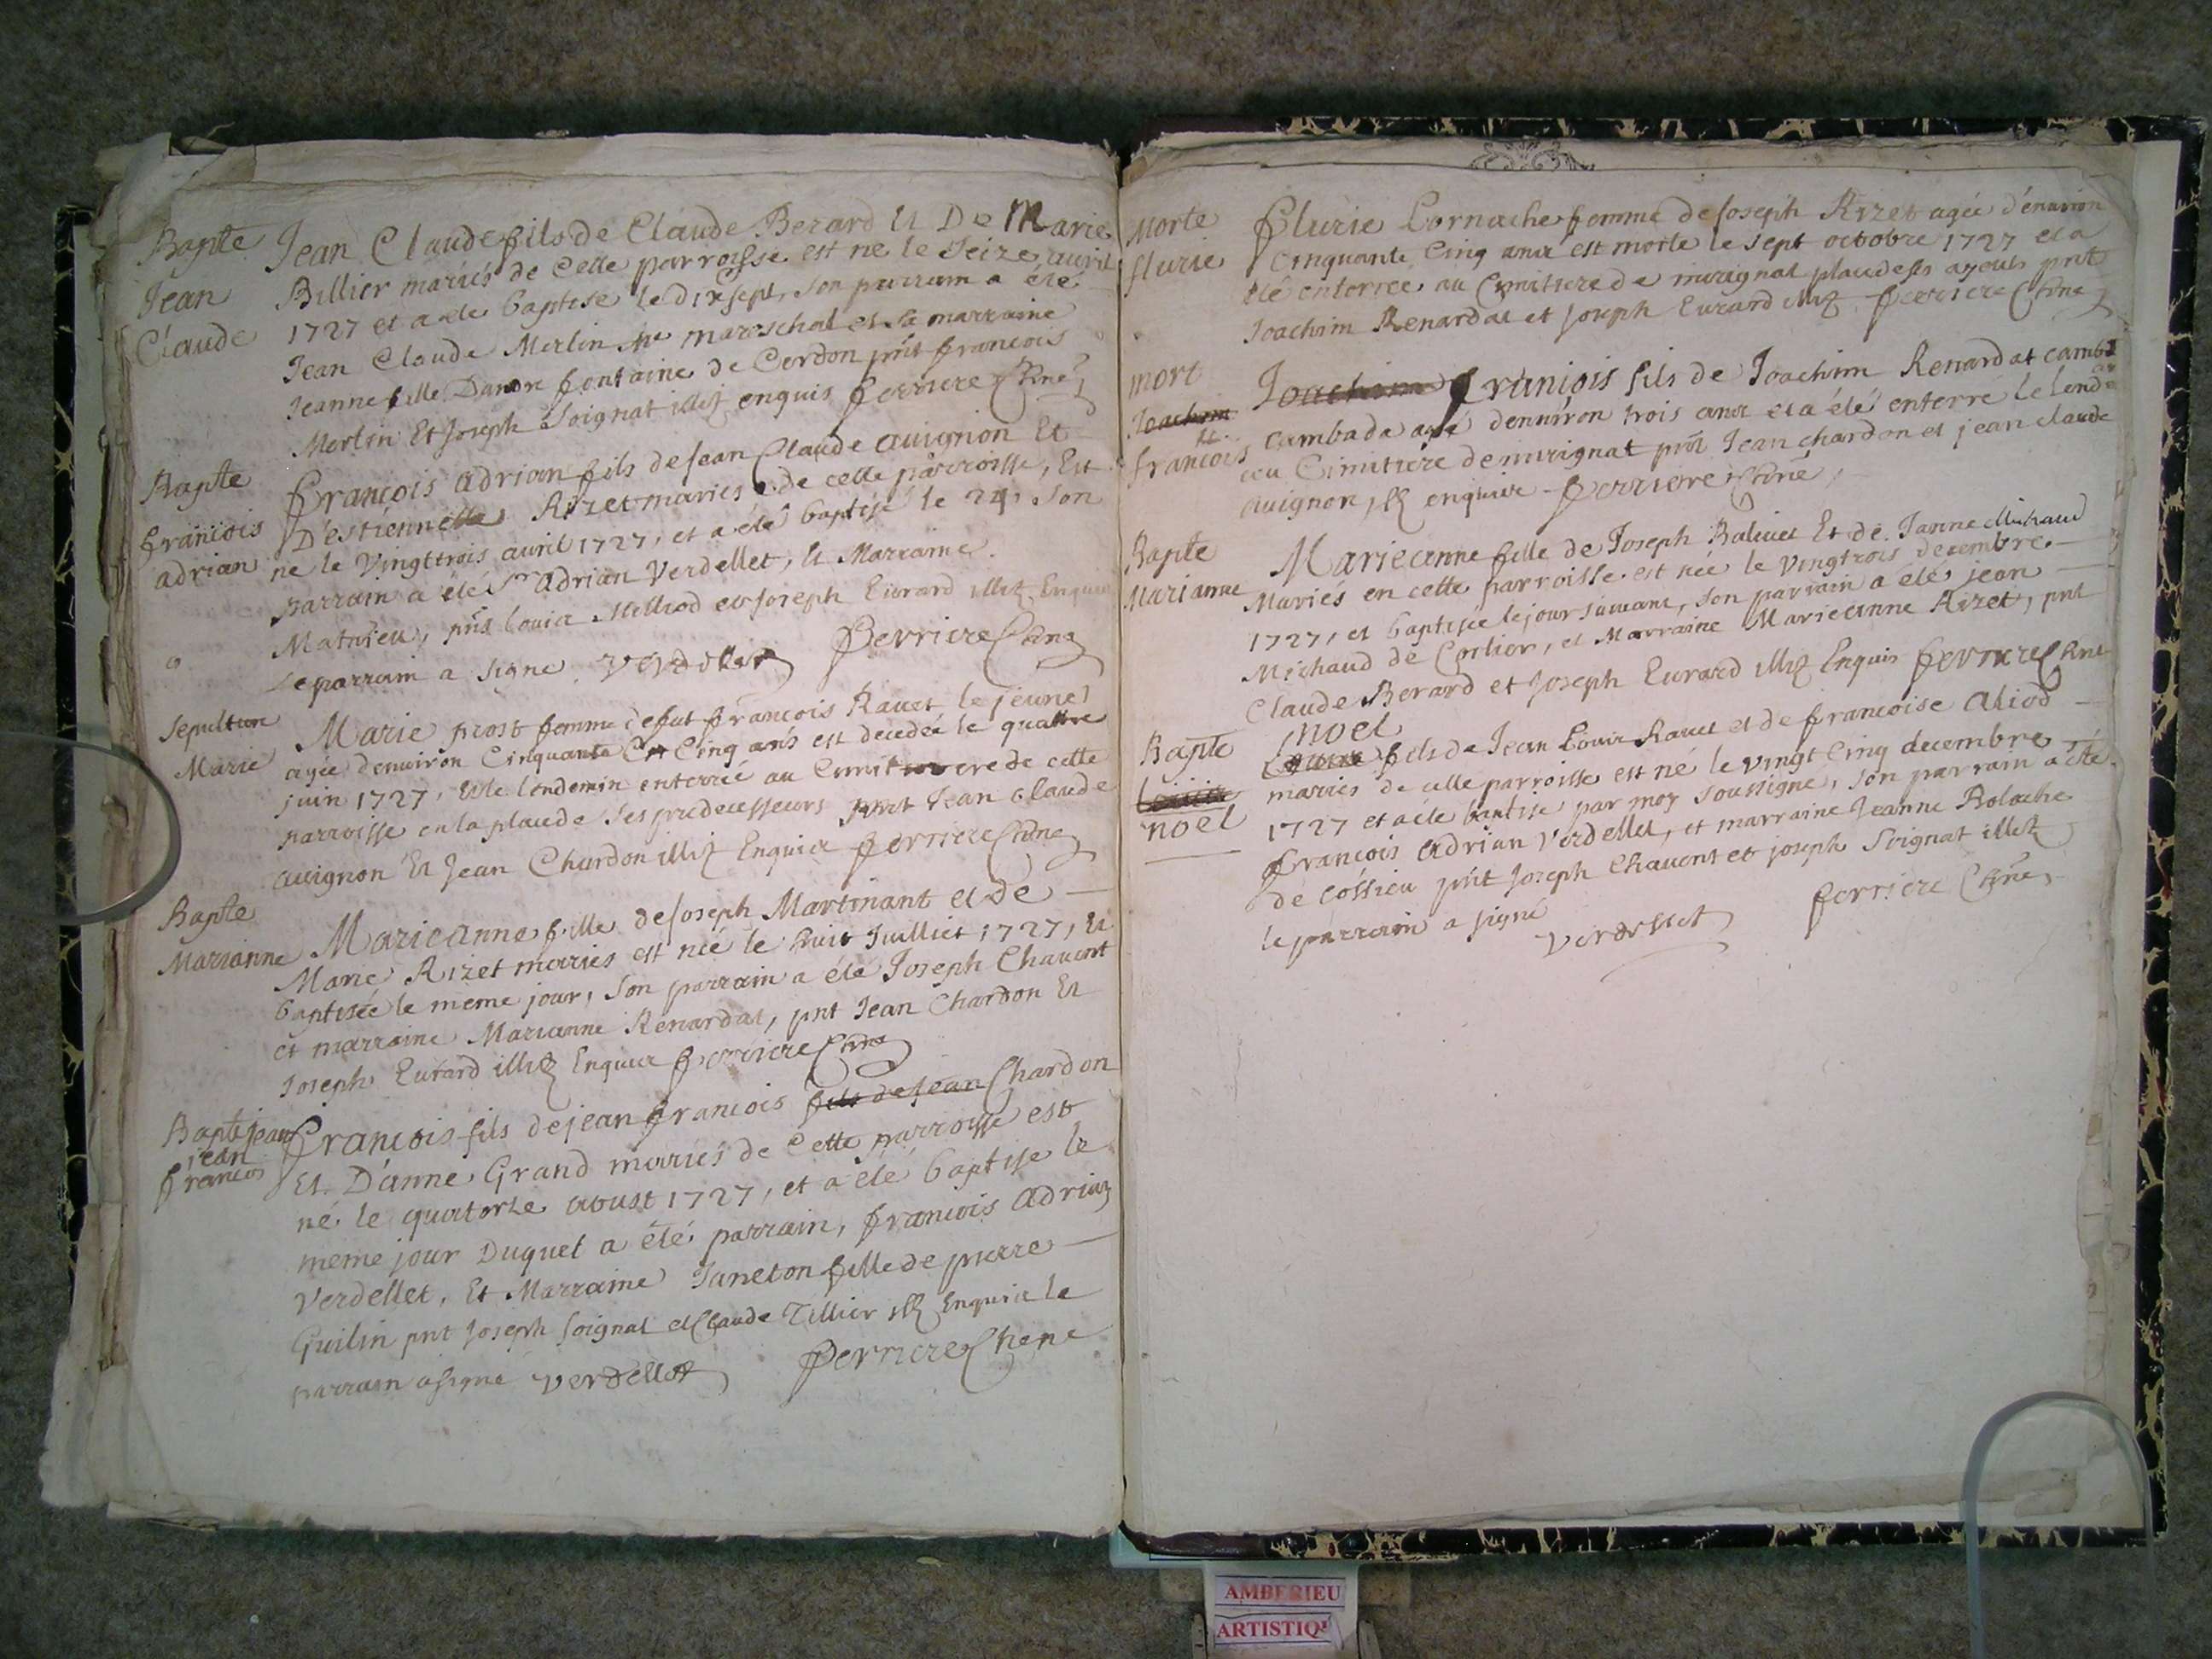 Bapte
Jean
Claude
Jean Claude fils de Claude Berard Et De Marie
Billier mariés de Cette parroisse est ne le Seize avril
1727 et a ete baptise le dixsept, son parrain a été
Jean Claude Merlin me mareschal et la marraine
Jeanne fille Dandre fontaine de Cordon pnt francois
Merlin Et Joseph Soignat illiz enquis ferriere
Bapte
francois
adrian
francois adrian fils de Jean Claude avignon Et
D'estiennette Rizet mariés de cette parroisse, Est
ne le Vingttrois avril 1727, et a été baptisé le 24, Son
parrain a été Sr adrian Verdellet, et Marraine
Mathieu, pns Louis Milliod et Joseph Evrard illiz Enquis
le parrain a signe Verdellet ferriere
Sepulture
Marie
Marie prost femme de fut francois Ravet le jeune
agée d'environ Cinquante Et Cinq ans est decedée le quattre
juin 1727, Et le lendemin enterrée au Cimitiere de cette
parroisse en la place de ses predecesseurs pnt Jean Claude
avignon Et Jean Chardon illiz Enquis ferriere
Bapte
Marianne
Marieanne fille de Joseph Martinant et de
Marie Rizet mariés est née le huit Juilliet 1727, Et
baptisée le meme jour, Son parrain a été Joseph Chavent
et marraine Marianne Renardat, pnt Jean Chardon Et
Joseph Evrard illiz Enquis ferriere
Bapte jean
jean
francois
francois fils de jean francois fils de Jean Chardon
Et D'anne Grand mariés de Cette parroisse est
né le quatorze aoust 1727, et a été baptise le
meme jour Duquel a été parrain, francois adrian
Verdellet, Et Marraine Janeton fille de pierre
Guilin pnt Joseph Soignat et Claude Tillier illz Enquis le
parrain a signé Verdellet ferriere
Morte
flurie
flurie Cornache femme de Joseph Rizet agée d'environ
Cinquante Cinq ans est morte le Sept octobre 1727 et a
été enterrée au Cimitiere de mirignat place de ses ayeuls pnt
Joachim Renardat et Joseph Evrard illiz ferriere
mort
Joachim
francois
Joachim francois fils de Joachim Renardat
cambada agé d'environ trois ans et a été enterré le lende
au Cimitiere de mirignat pnt Jean chardon et jean claude
avignon illz enquis ferriere
Bapte
Marianne
Marieanne fille de Joseph Balivet Et de Janne Michaud
Mariés en cette parroisse est née le Vingtrois decembre
1727, et baptisée le jour suivant, son parrain a été jean
Michaud de Corlier, et Marraine Marieanne Rizet, pnt
Claude Berard et Joseph Evrard illiz Enquis ferriere
Bapte
noel
noel
fils de Jean Louis Ravet et de francoise aliod
mariés de cette parroisse est né le vingt Cinq decembre
1727 et a été baptise par moy soussigne, son parrain a été
francois adrian Verdellet, et marraine Jeanne Bolache
de Cossieu pnt Joseph Chavent et joseph Soignat illiz
le parrain a signé
Verdellet ferriere
AMBERIEU
ARTISTIQ